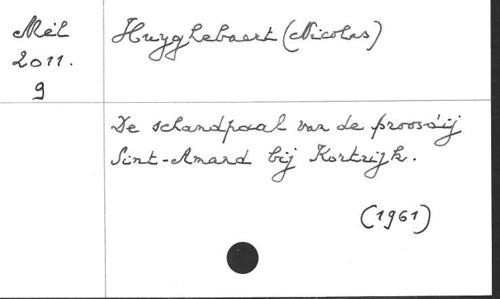 Mél
2011.
9
Huyghebaert (Nicolas)
De schandpaal van de proosdij
Sint-Amand bij Kortrijk.
(1961)